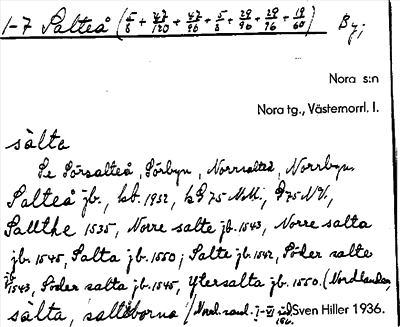 1-7 Salteå (5/8 + 47/120 + 47/96 + 5/8 + 29/96 + 29/96 + 19/60) By;
Nora s:n
Nora tg., Västernorrl. l.
sàlta
Se Sörsalteå, Sörbyn, Norrsalteå, Norrbyn.
Salteå jb., kt. 1932,
Sallthe 1535, Norre salta jb. 1543, Norre salta
jb. 1545, Salta jb. 1550; Salte jb. 1542, Söder salte
jb. 1543, Söder salta jb. 1545, Ytersalta jb. 1550. (Nordlander,
sàlta, saltéborna / Norrl. saml. I-VI
Sven Hiller 1936.